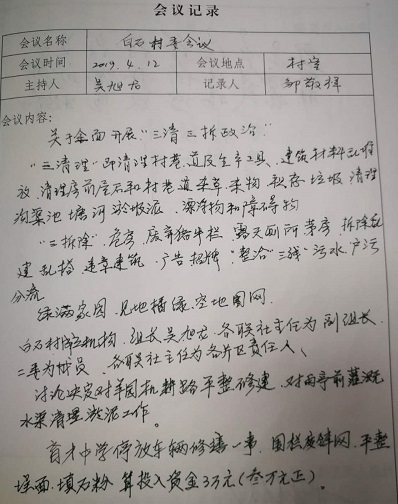 会议记录
会议名称 白石村委会议
会议时间 2019. 4. 12 会议地点 村室
主持人 吴旭龙 记录人 邹敬
会议内容:
关于全面开展“三清三拆三整治”
“三清理”即清理村巷道及生产工具、建筑材料乱堆
放,清理房前屋后和村巷道杂草杂物、积存垃圾,清理
沟渠池塘河淤垃圾、漂浮物和障碍物
“三拆除”危房、废弃猪牛栏、露天厕所茅房,拆除乱
建乱搭、违章建筑,广告招牌,整治“三线”污水,户污
分流
绿满家园,见地插绿,空地围网.
白石村 机构,组长吴旭龙,各联社主任为副组长,
二委为成员,各联社主任为各片区责任人、
讨论决定对羊园机耕路平整修建,对 亭前灌溉
水渠清理淤泥工作。
育才中学停放车辆修缮一事,围栏废锌网,平整
场面,填石粉 算投入资金3万元(叁万元正)。